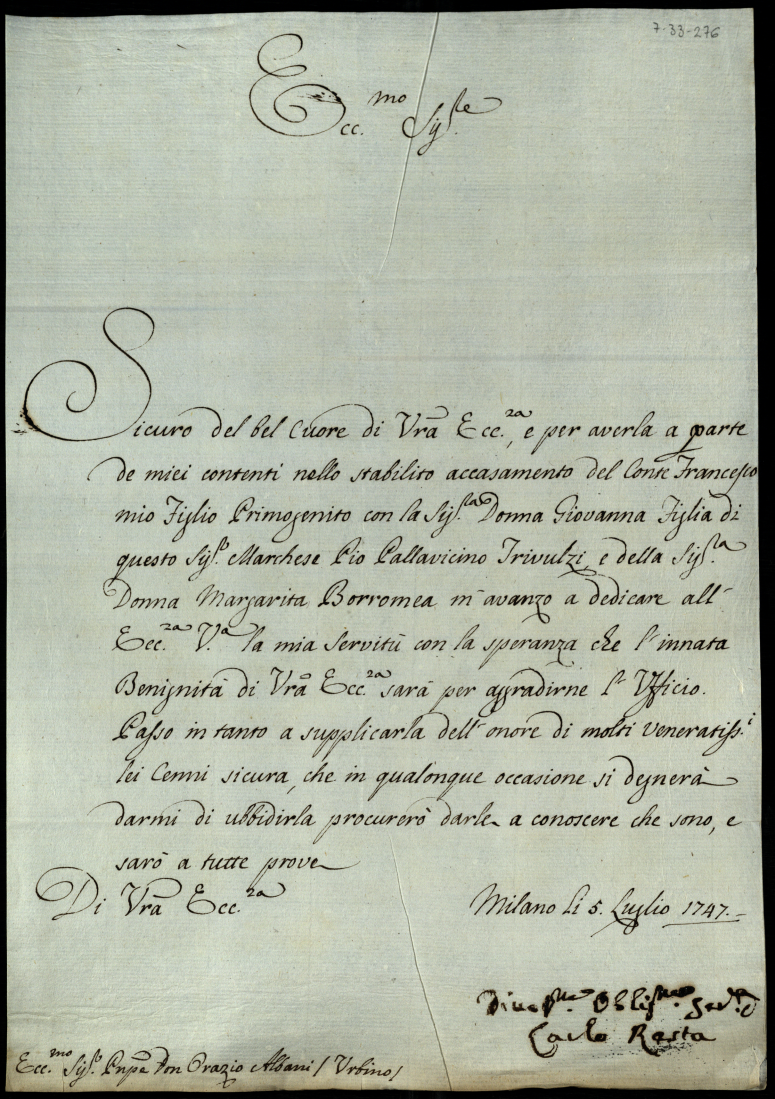 7-33-276
Ecc.mo Sig.re
Sicuro del bel Cuore di Vrã Ecc.za, e per averla a parte
de miei contenti nello stabilito accasamento del Conte Francesco
mio Figlio Primogenito con la Sig.ra Donna Giovanna Figlia di
questo Sig.r Marchese Pio Pallavicino Trivulzi, e della Sig.ra
Donna Margarita Borromea m'avanzo a dedicare all'
Ecc.za V.a la mia Servitù con la speranza che l'innata
Benignità di Vrã Ecc.za sarà per aggradirne l'Ufficio.
Passo in tanto a supplicarla dell'onore di molti veneratiss.i
lei Cenni sicura, che in qualonque occasione si degnerà
darmi di ubbidirla procurerò darle a conoscere che sono, e
sarò a tutte prove
Di Vrã Ecc.za
Milano li 5. Luglio 1747.
Divot.mo Oblig.mo Serv.e
Carlo Resta
Ecc.mo Sig.r Pnpe Don Orazio Albani / Urbino /